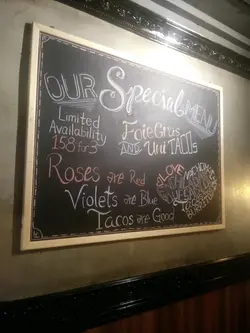 OUR Special MENU
Limited
Availability
158 for 3
Foie Gras
AND Uni TACOs
Roses are Red
Violets are Blue
Tacos are Good
LOVE